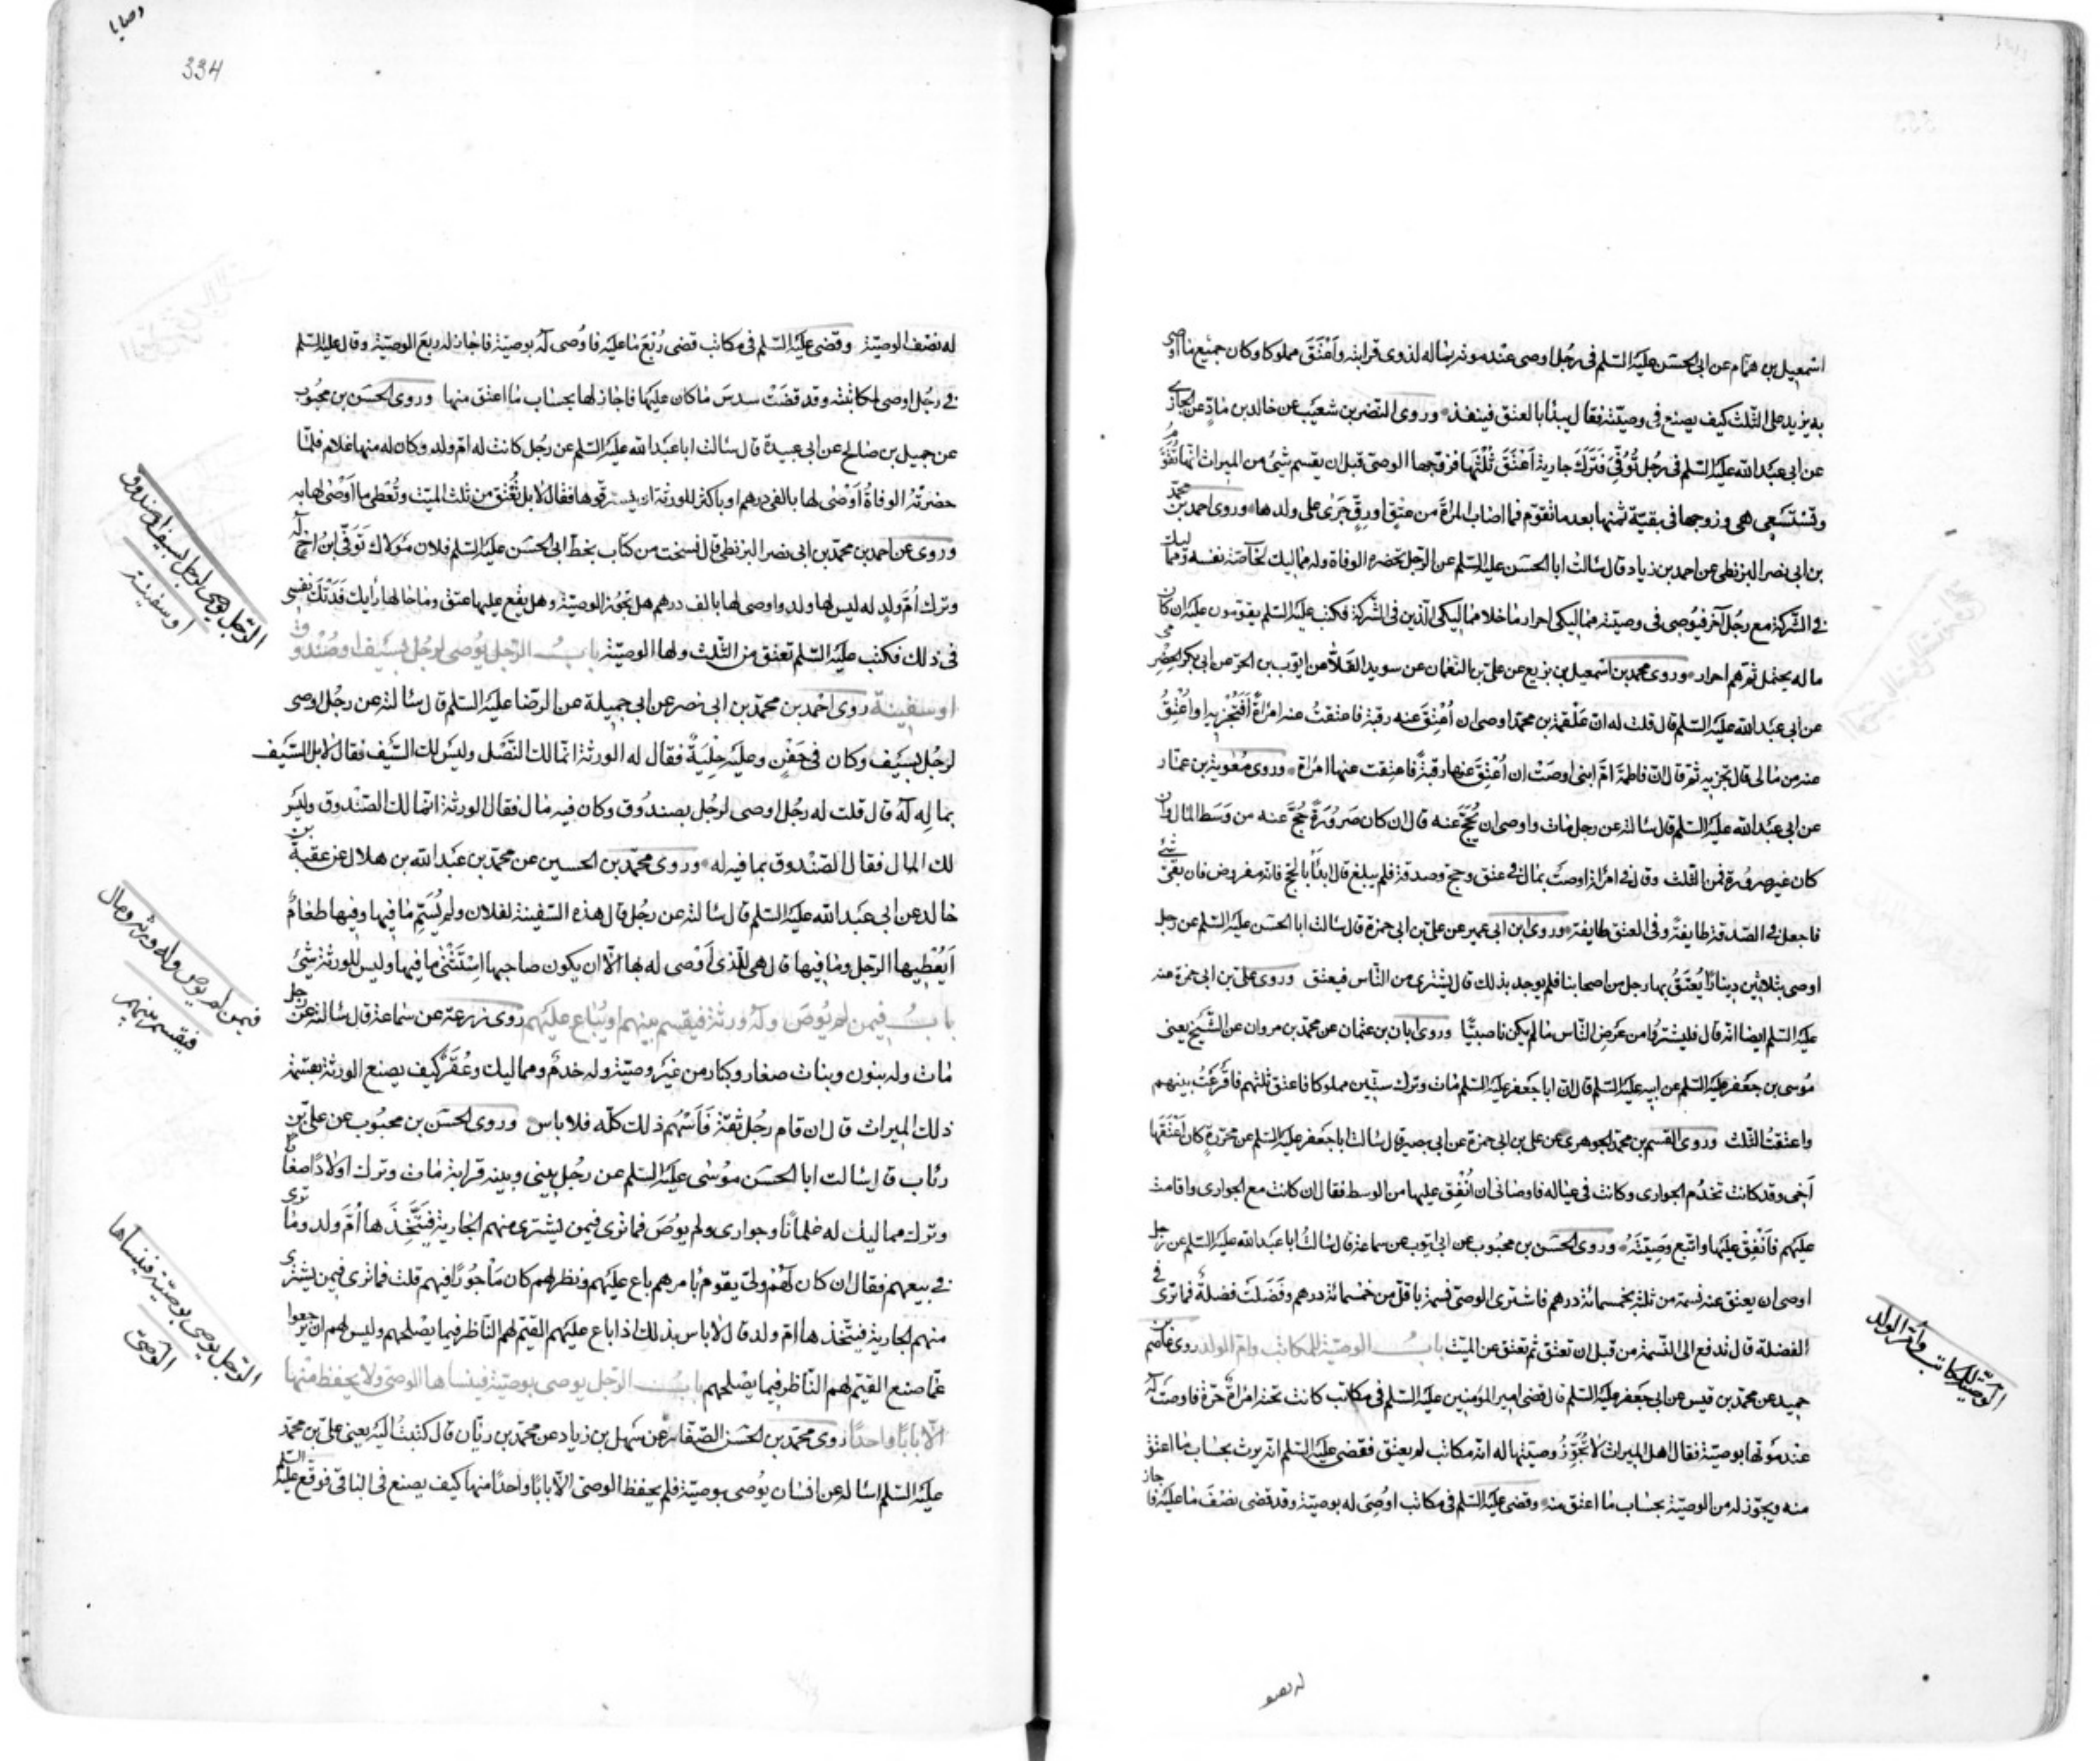 اسمعيل بن همام عن ابى الحسن عليه السلم فى رجل اوصى عند موته بماله لذوى قرابته واعتق مملوكا وكان جميع ما اوصى
به يزيد على الثلث كيف يصنع فى وصيته فقال يبدأ بالعتق فينفذ وروى النضر بن شعيب عن خالد بن ماد عن الجازى
عن ابى عبد الله عليه السلم فى رجل توفى فترك جارية اعتق ثلثها فتزوجها الوصى قبل ان يقسم شئ من الميراث انها تقوم
وتستسعى هى وزوجها فى بقية ثمنها بعد ما تقوم فما اصاب المراة من عتق او رق جرى على ولدها وروى احمد بن محمد
بن ابى نصر البزنطى عن احمد بن زياد قال سالت ابا الحسن عليه السلم عن الرجل تحضره الوفاة وله مماليك لخاصة نفسه ومماليك
فى الشركة مع رجل آخر فيوصى فى وصيته مماليكى احرار ما خلا مماليكى الذين فى الشركة فكتب عليه السلم يقومون عليه ان كان
ماله يحتمل ثم هم احرار وروى محمد بن اسمعيل بن بزيع عن على بن النعمان عن سويد القلاء عن ايوب بن الحر عن ابى بكر الحضرمى
عن ابى عبد الله عليه السلم قال قلت له ان علقمة بن محمد اوصى ان اعتق عنه رقبة فاعتقت عنه امراة افتجزيه او اعتق
عنه من مالى قال تجزيه ثم قال ان فاطمة ام ابنى اوصت ان اعتق عنها رقبة فاعتقت عنها امراة وروى معوية بن عمار
عن ابى عبد الله عليه السلم قال سالته عن رجل مات واوصى ان يحج عنه قال ان كان صرورة حج عنه من وسط المال وان
كان غير صرورة فمن الثلث وقال فى امراة اوصت بمال فى عتق وحج وصدقة فلم يبلغ قال ابدأ بالحج فانه مفروض فان بقى شئ
فاجعل فى الصدقة طايفة وفى العتق طايفة وروى ابن ابى عمير عن على بن ابى حمزة قال سالت ابا الحسن عليه السلم عن رجل
اوصى بثلاثين دينارا يعتق بها رجل من اصحابنا فلم يوجد بذلك قال يشترى من الناس فيعتق وروى على بن ابى حمزة عنه
عليه السلم ايضا انه قال فليشتروا من عرض الناس ما لم يكن ناصبيا وروى ابان بن عثمان عن محمد بن مروان عن الشيخ يعنى
موسى بن جعفر عليه السلم عن ابيه عليه السلم قال ان ابا جعفر عليه السلم مات وترك ستين مملوكا فاعتق ثلثهم فاقرعت بينهم
واعتقت الثلث وروى القسم بن محمد الجوهرى عن على بن ابى حمزة عن ابى بصير قال سالت ابا جعفر عليه السلم عن محررة كان اعتقها
اخى وقد كانت تخدم الجوارى وكانت فى عياله فاوصانى ان انفق عليها من الوسط فقال ان كانت مع الجوارى واقامت
عليهم فانفق عليها واتبع وصيته وروى الحسن بن محبوب عن ابى ايوب عن سماعة قال سالت ابا عبد الله عليه السلم عن رجل
اوصى ان يعتق عنه نسمة من ثلثه بخمسمائة درهم فاشترى الوصى نسمة باقل من خمسمائة درهم وفضلت فضلة فما ترى فى
الفضلة قال تدفع الى النسمة من قبل ان تعتق ثم تعتق عن الميت باب الوصية للمكاتب وام الولد روى عاصم بن
حميد عن محمد بن قيس عن ابى جعفر عليه السلم قال قضى امير المؤمنين عليه السلم فى مكاتب كانت تحته امراة حرة فاوصت له
عند موتها بوصية فقال اهل الميراث لا تجوز وصيتها له انه مكاتب لم يعتق فقضى عليه السلم انه يرث بحساب ما اعتق
منه ويجوز له من الوصية بحساب ما اعتق منه وقضى عليه السلم فى مكاتب اوصى له بوصية وقد قضى نصف ما عليه فاجاز
الوصية للمكاتب وام الولد
له نصف
وصايا
334
له نصف الوصية وقضى عليه السلم فى مكاتب قضى ربع ما عليه فاوصى له بوصية فاجاز له ربع الوصية وقال عليه السلم
فى رجل اوصى لمكاتبته وقد قضت سدس ما كان عليها فاجاز لها بحساب ما اعتق منها وروى الحسن بن محبوب
عن جميل بن صالح عن ابى عبيدة قال سالت ابا عبد الله عليه السلم عن رجل كانت له ام ولد وكان له منها غلام فلما
حضرته الوفاة اوصى لها بالفى درهم او باكثر للورثة ان يسترقوها فقال لا بل تعتق من ثلث الميت وتعطى ما اوصى لها به
وروى عن احمد بن محمد بن ابى نصر البزنطى قال نسخت من كتاب بخط ابى الحسن عليه السلم فلان مولاك توفى ابن اخ له
وترك ام ولد له ليس لها ولد واوصى لها بالف درهم هل تجوز الوصية وهل يقع عليها عتق وما حالها رأيك فدتك نفسى
فى ذلك فكتب عليه السلم تعتق من الثلث ولها الوصية باب الرجل يوصى لرجل بسيف او صندوق
او سفينة روى احمد بن محمد بن ابى نصر عن ابى جميلة عن الرضا عليه السلم قال سالته عن رجل اوصى
لرجل بسيف وكان فى جفن وعليه حلية فقال له الورثة انما لك النصل وليس لك السيف فقال لا بل السيف
بما فيه له قال قلت له رجل اوصى لرجل بصندوق وكان فيه مال فقال الورثة انما لك الصندوق وليس
لك المال فقال الصندوق بما فيه له وروى محمد بن الحسين عن محمد بن عبد الله بن هلال عن عقبة بن
خالد عن ابى عبد الله عليه السلم قال سالته عن رجل قال هذه السفينة لفلان ولم يسم ما فيها وفيها طعام
ايعطيها الرجل وما فيها قال هى للذى اوصى له بها الا ان يكون صاحبها استثنى ما فيها وليس للورثة شئ
باب فيمن لم يوص وله ورثة فيقسم بينهم او يباع عليهم روى زرعة عن سماعة قال سالته عن رجل
مات وله بنون وبنات صغار وكبار من غير وصية وله خدم ومماليك وعقر كيف يصنع الورثة بقسمة
ذلك الميراث قال ان قام رجل ثقة قاسمهم ذلك كله فلا باس وروى الحسن بن محبوب عن على بن
رئاب قال سالت ابا الحسن موسى عليه السلم عن رجل بينى وبينه قرابة مات وترك اولادا صغارا
وترك مماليك له غلمانا وجوارى ولم يوص فما ترى فيمن يشترى منهم الجارية فيتخذها ام ولد وما ترى
فى بيعهم فقال ان كان لهم ولى يقوم بامرهم باع عليهم ونظر لهم كان ماجورا فيهم قلت فما ترى فيمن يشترى
منهم الجارية فيتخذها ام ولد قال لا باس بذلك اذا باع عليهم القيم لهم الناظر فيما يصلحهم وليس لهم ان يرجعوا
عما صنع القيم لهم الناظر فيما يصلحهم باب الرجل يوصى بوصية فينساها الوصى ولا يحفظ منها
الا بابا واحدا روى محمد بن الحسن الصفار عن سهل بن زياد عن محمد بن ريان قال كتبت اليه يعنى على بن محمد
عليه السلم اساله عن انسان يوصى بوصية فلم يحفظ الوصى الا بابا واحدا منها كيف يصنع فى الباقى فوقع عليه السلم
الرجل يوصى لرجل بسيف او صندوق
او سفينة
فيمن لم يوص وله ورثة ومال
فيقسم بينهم
الرجل يوصى بوصية فينساها
الوصى